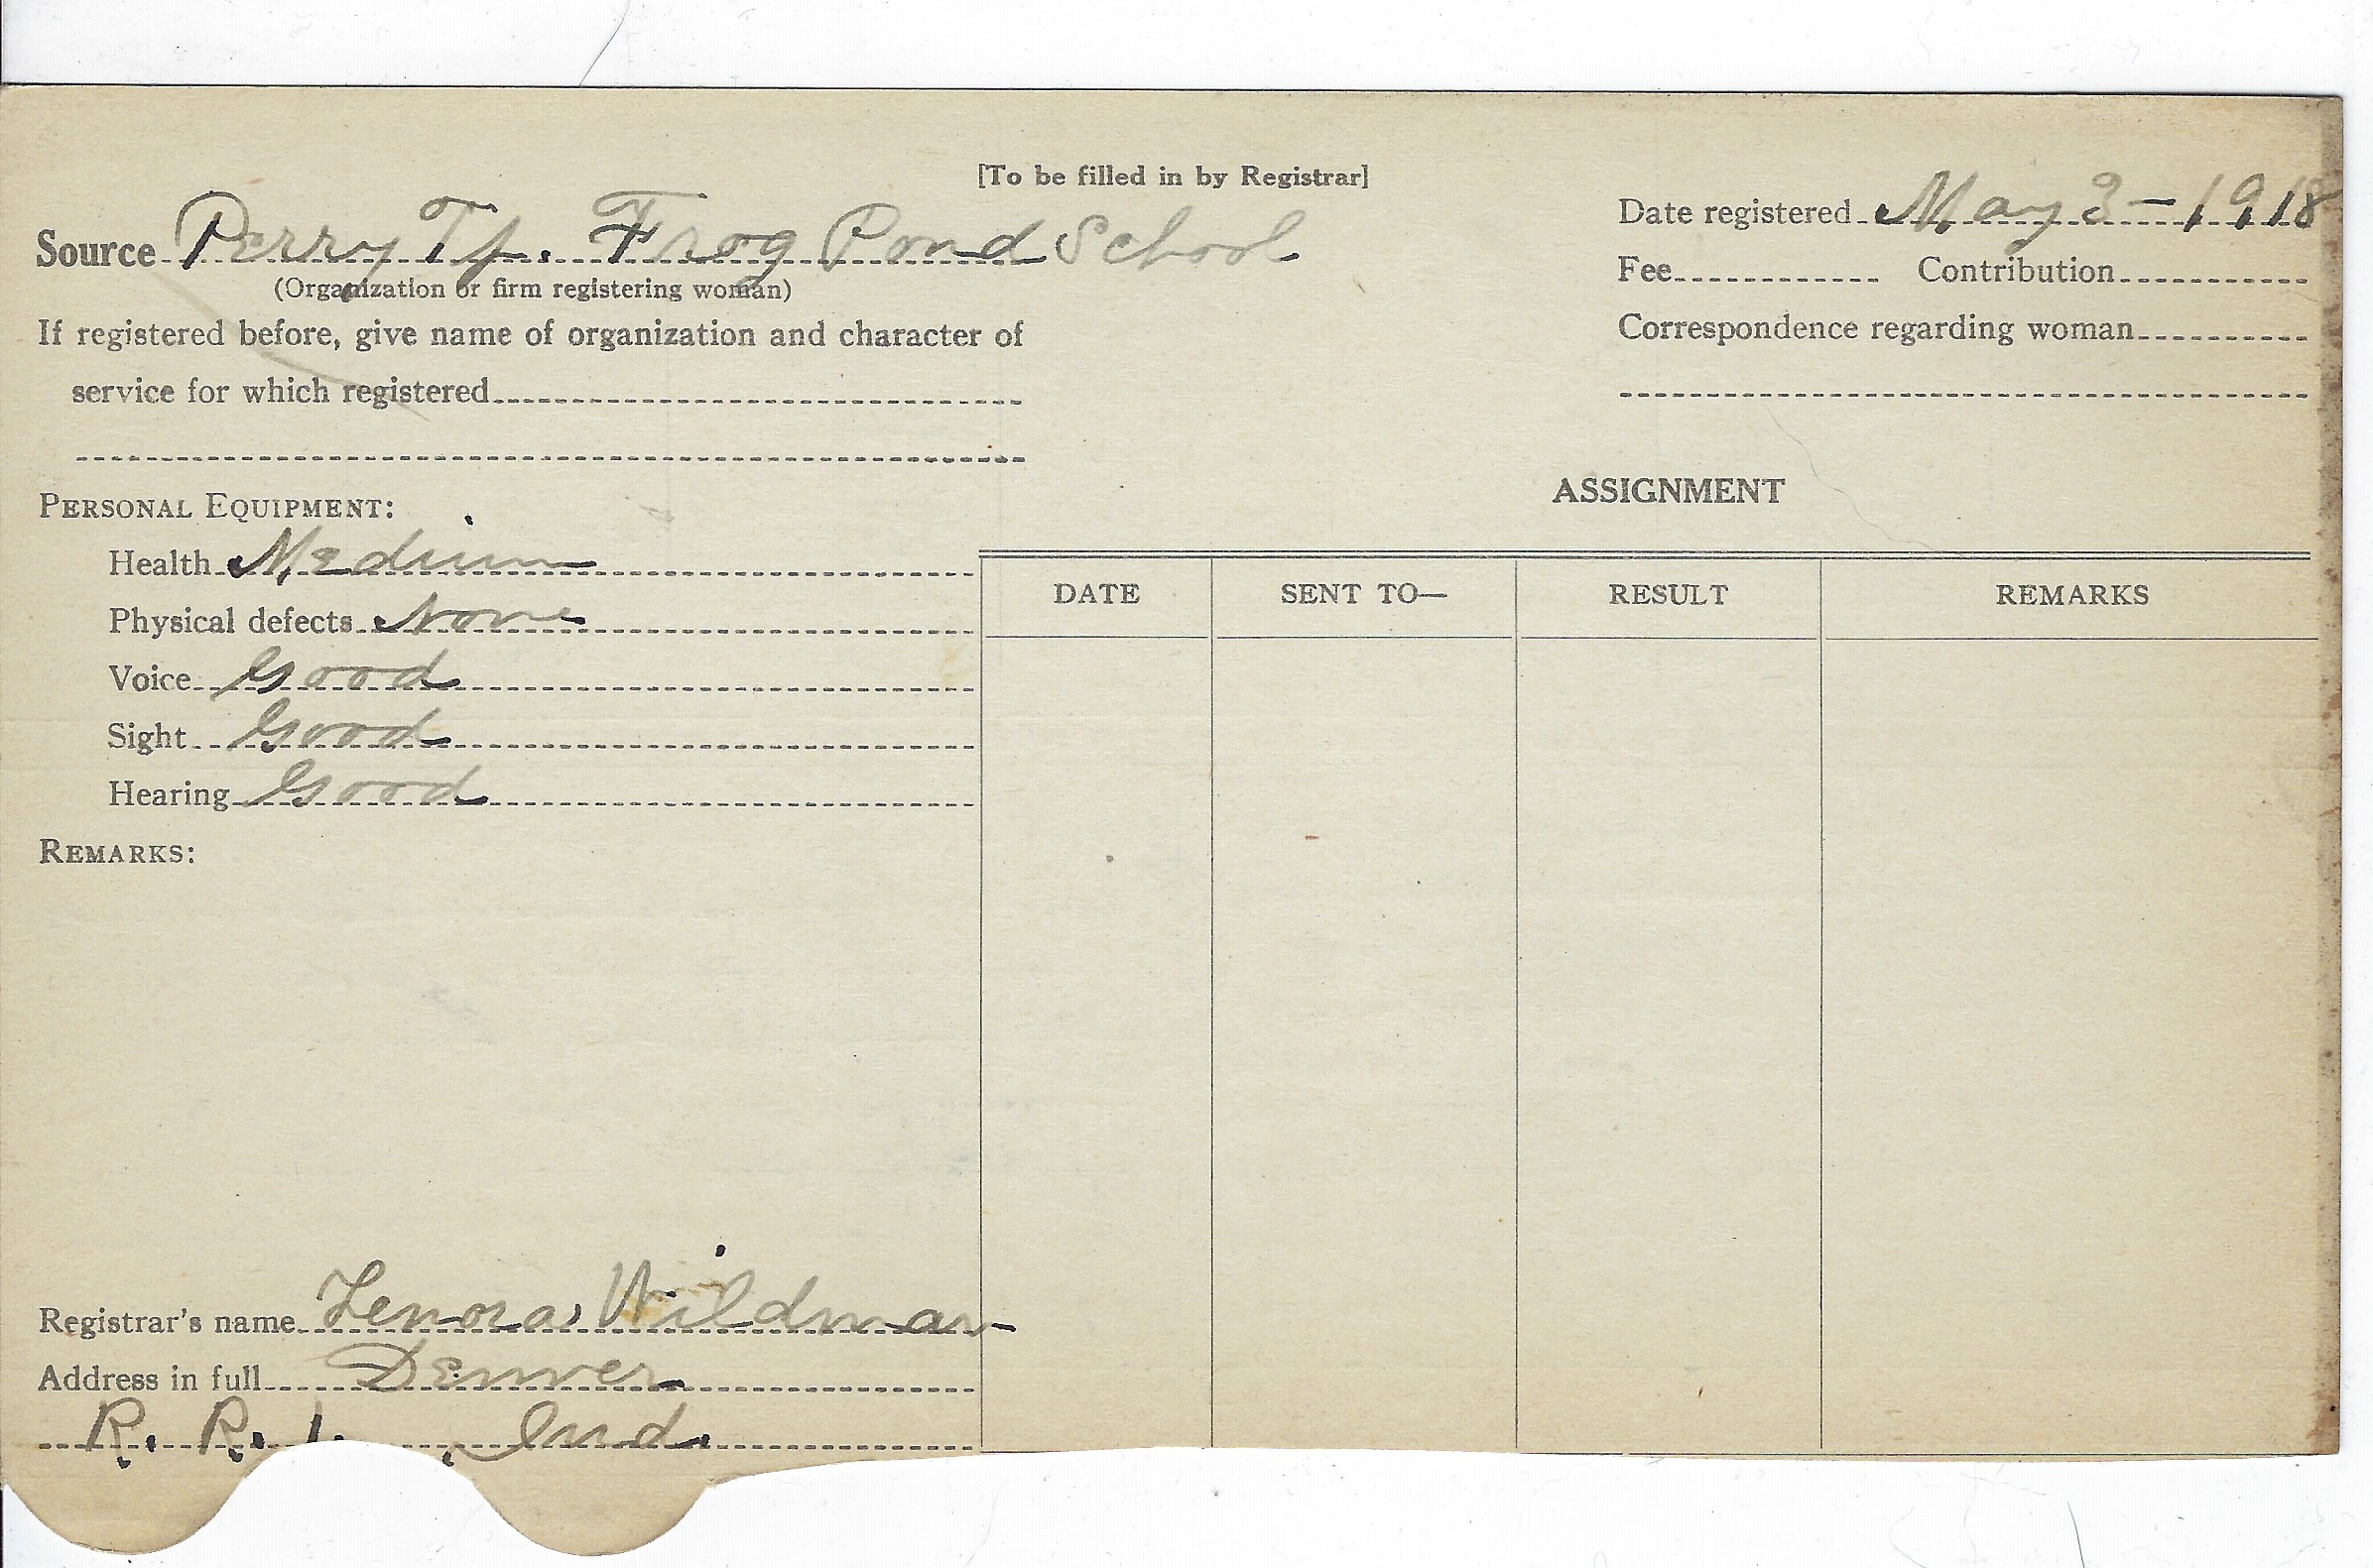 [To be filled in by Registrar]
Source Perry Tp. Frog Pond School
(Organization or firm registering woman)
If registered before, give name of organization and character of
service for which registered
Date registered May 3-1918
Fee Contribution
Correspondence regarding woman
PERSONAL EQUIPMENT:
Health Medium
Physical defects None
Voice Good
Sight Good
Hearing Good
REMARKS:
ASSIGNMENT
DATE SENT TO— RESULT REMARKS
Registrar's name Lenora Wildman
Address in full Denver
R. R. 1. Ind.